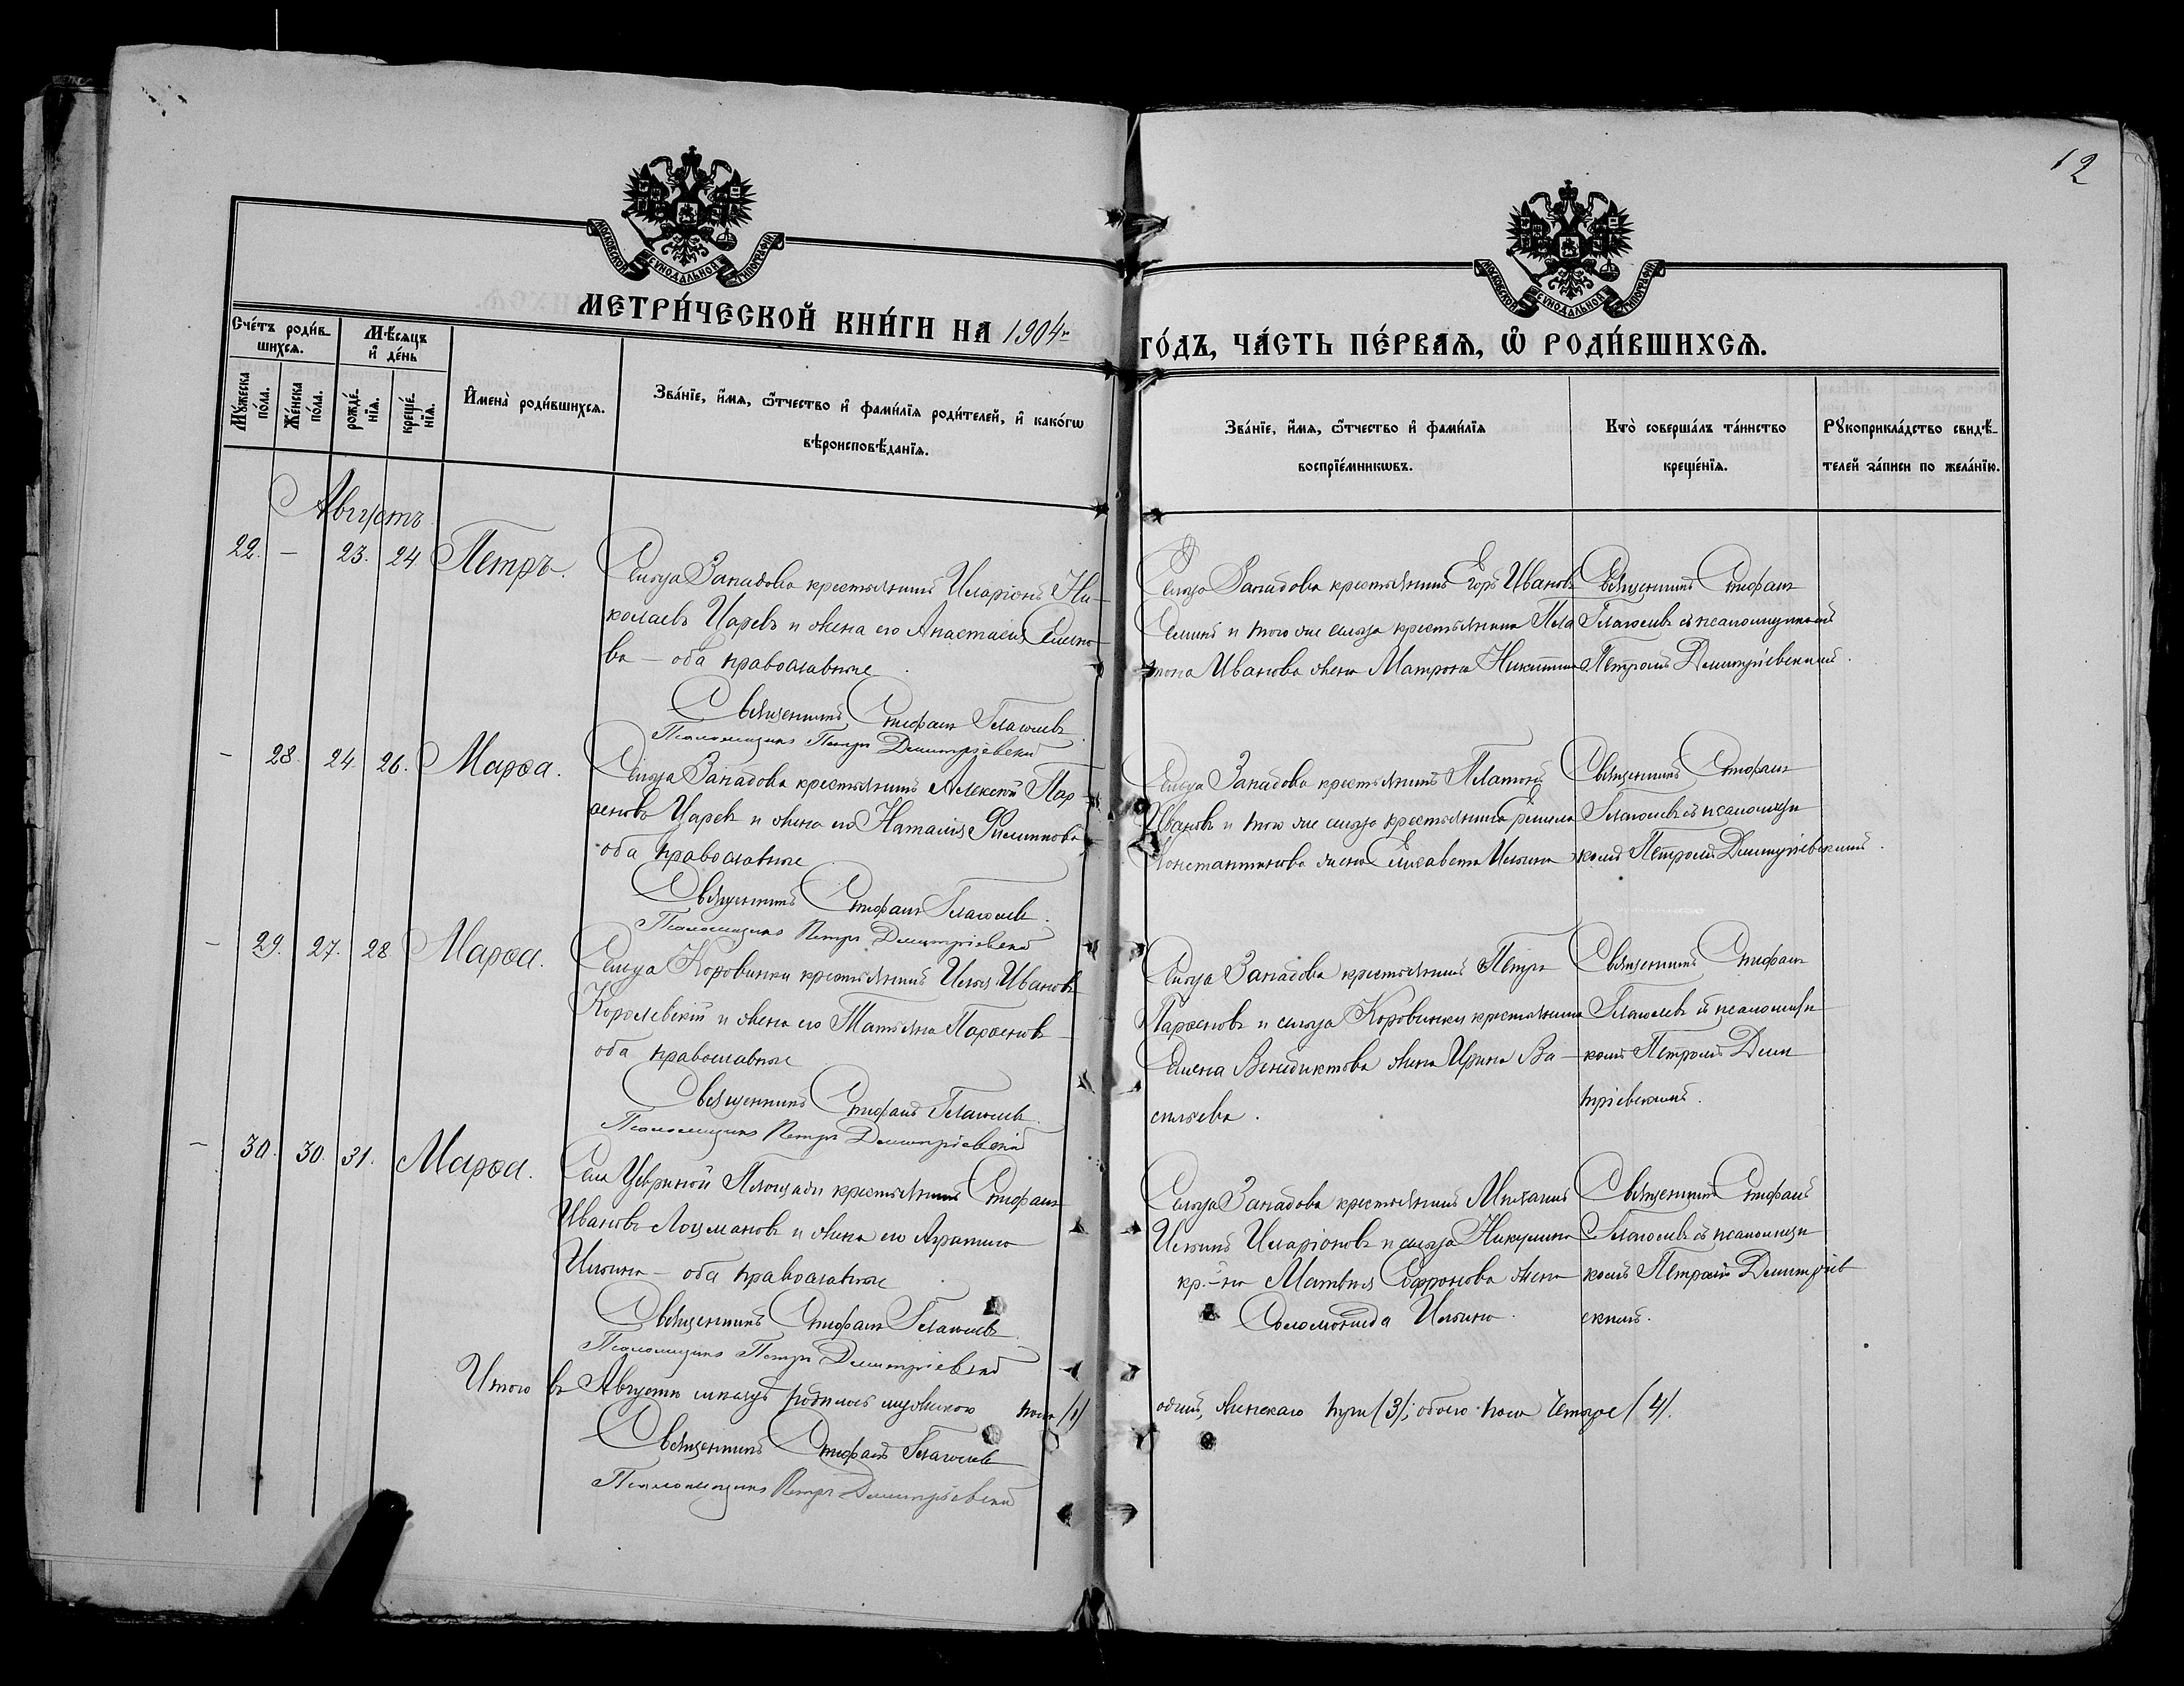 12
МОСКОВСКОЙ СѴНОДАЛЬНОЙ ТИПОГРАФІИ
МОСКОВСКОЙ СѴНОДАЛЬНОЙ ТИПОГРАФІИ
МЕТРИ́ЧЕСКОЙ КНИ́ГИ НА 1904 г.
ГО́ДЪ, ЧА́СТЬ ПЕ́РВАѦ, Ѡ҆ РОДИ́ВШИХСѦ.
Сче́тъ роди́в-
шихсѧ.
Мѣ́сяцъ
и҆ де́нь
Мꙋ́жеска
по́ла.
Же́нска
по́ла.
рожде́-
нїѧ.
креще́-
нїѧ.
И҆мена̀ роди́вшихсѧ.
Зва́нїе, и҆́мѧ, ѻ҆́тчество и҆ фами́лїѧ роди́телей, и҆ како́гѡ
вѣроисповѣ́данїѧ.
Зва́нїе, и҆́мѧ, ѻ҆́тчество и҆ фами́лїѧ
воспрїе́мникѡвъ.
Кто̀ соверша́лъ та́инство
креще́нїѧ.
Рꙋкоприкла́дство свидѣ́-
телей за́писи по жела́нїю.
Августъ
22. — 23. 24 Петръ.
Сельца Западова крестьянинъ Иларіонъ Ни-
колаевъ Царевъ и жена его Анастасія Семено-
ва — оба православные
Священникъ Стефанъ Глаголевъ
Псаломщикъ Петръ Димитріевскій
Сельца Западова крестьянинъ Егоръ Ивановъ
и того же сельца крестьянина Пла
тона Иванова жена Матрона Никитина
Священникъ Стефанъ
Глаголевъ съ псаломщикомъ
Петромъ Димитріевскимъ.
— 28. 24. 26. Марѳа.
Сельца Западова крестьянинъ Алексѣй Пар-
ѳеновъ Царевъ и жена его Наталія Филиппова
оба православные
Священникъ Стефанъ Глаголевъ.
Псаломщикъ Петръ Димитріевскій
Сельца Западова крестьянинъ Платонъ
Ивановъ и того же сельца крестьянина
Константинова жена Елисавета Ильина
Священникъ Стефанъ
Глаголевъ съ псаломщи
комъ Петромъ Димитріевскимъ.
— 29. 27. 28. Марѳа.
Сельца Коровинки крестьянинъ Илья Ивановъ
Королевскій и жена его Татьяна Парѳенов
оба православные
Священникъ Стефанъ Глаголевъ.
Псаломщикъ Петръ Димитріевскій
Сельца Западова крестьянинъ Петръ
Парѳеновъ и сельца Коровинки крестьянина
Венедиктова жена Ирина Ва-
сильева.
Священникъ Стефанъ
Глаголевъ съ псаломщи
комъ Петромъ Дими
тріевскимъ.
— 30. 30. 31. Марѳа.
Села крестьянинъ Стефанъ
Ивановъ Лоцмановъ и жена его Агрипина
Ильина — оба православные
Священникъ Стефанъ Глаголевъ.
Псаломщикъ Петръ Димитріевскій
Сельца Западова крестьянинъ Михаилъ
Ильинъ Иларіоновъ и сельца Никулина
кр-на Матвѣя Софронова жена
Соломонида Ильина.
Священникъ Стефанъ
Глаголевъ съ псаломщи
комъ Петромъ Димитріев
скимъ.
Итого въ Августѣ мѣсяцѣ родилось мужского пола (1)
одинъ, женскаго три (3), обоего пола четыре (4).
Священникъ Стефанъ Глаголевъ
Псаломщикъ Петръ Димитріевскій